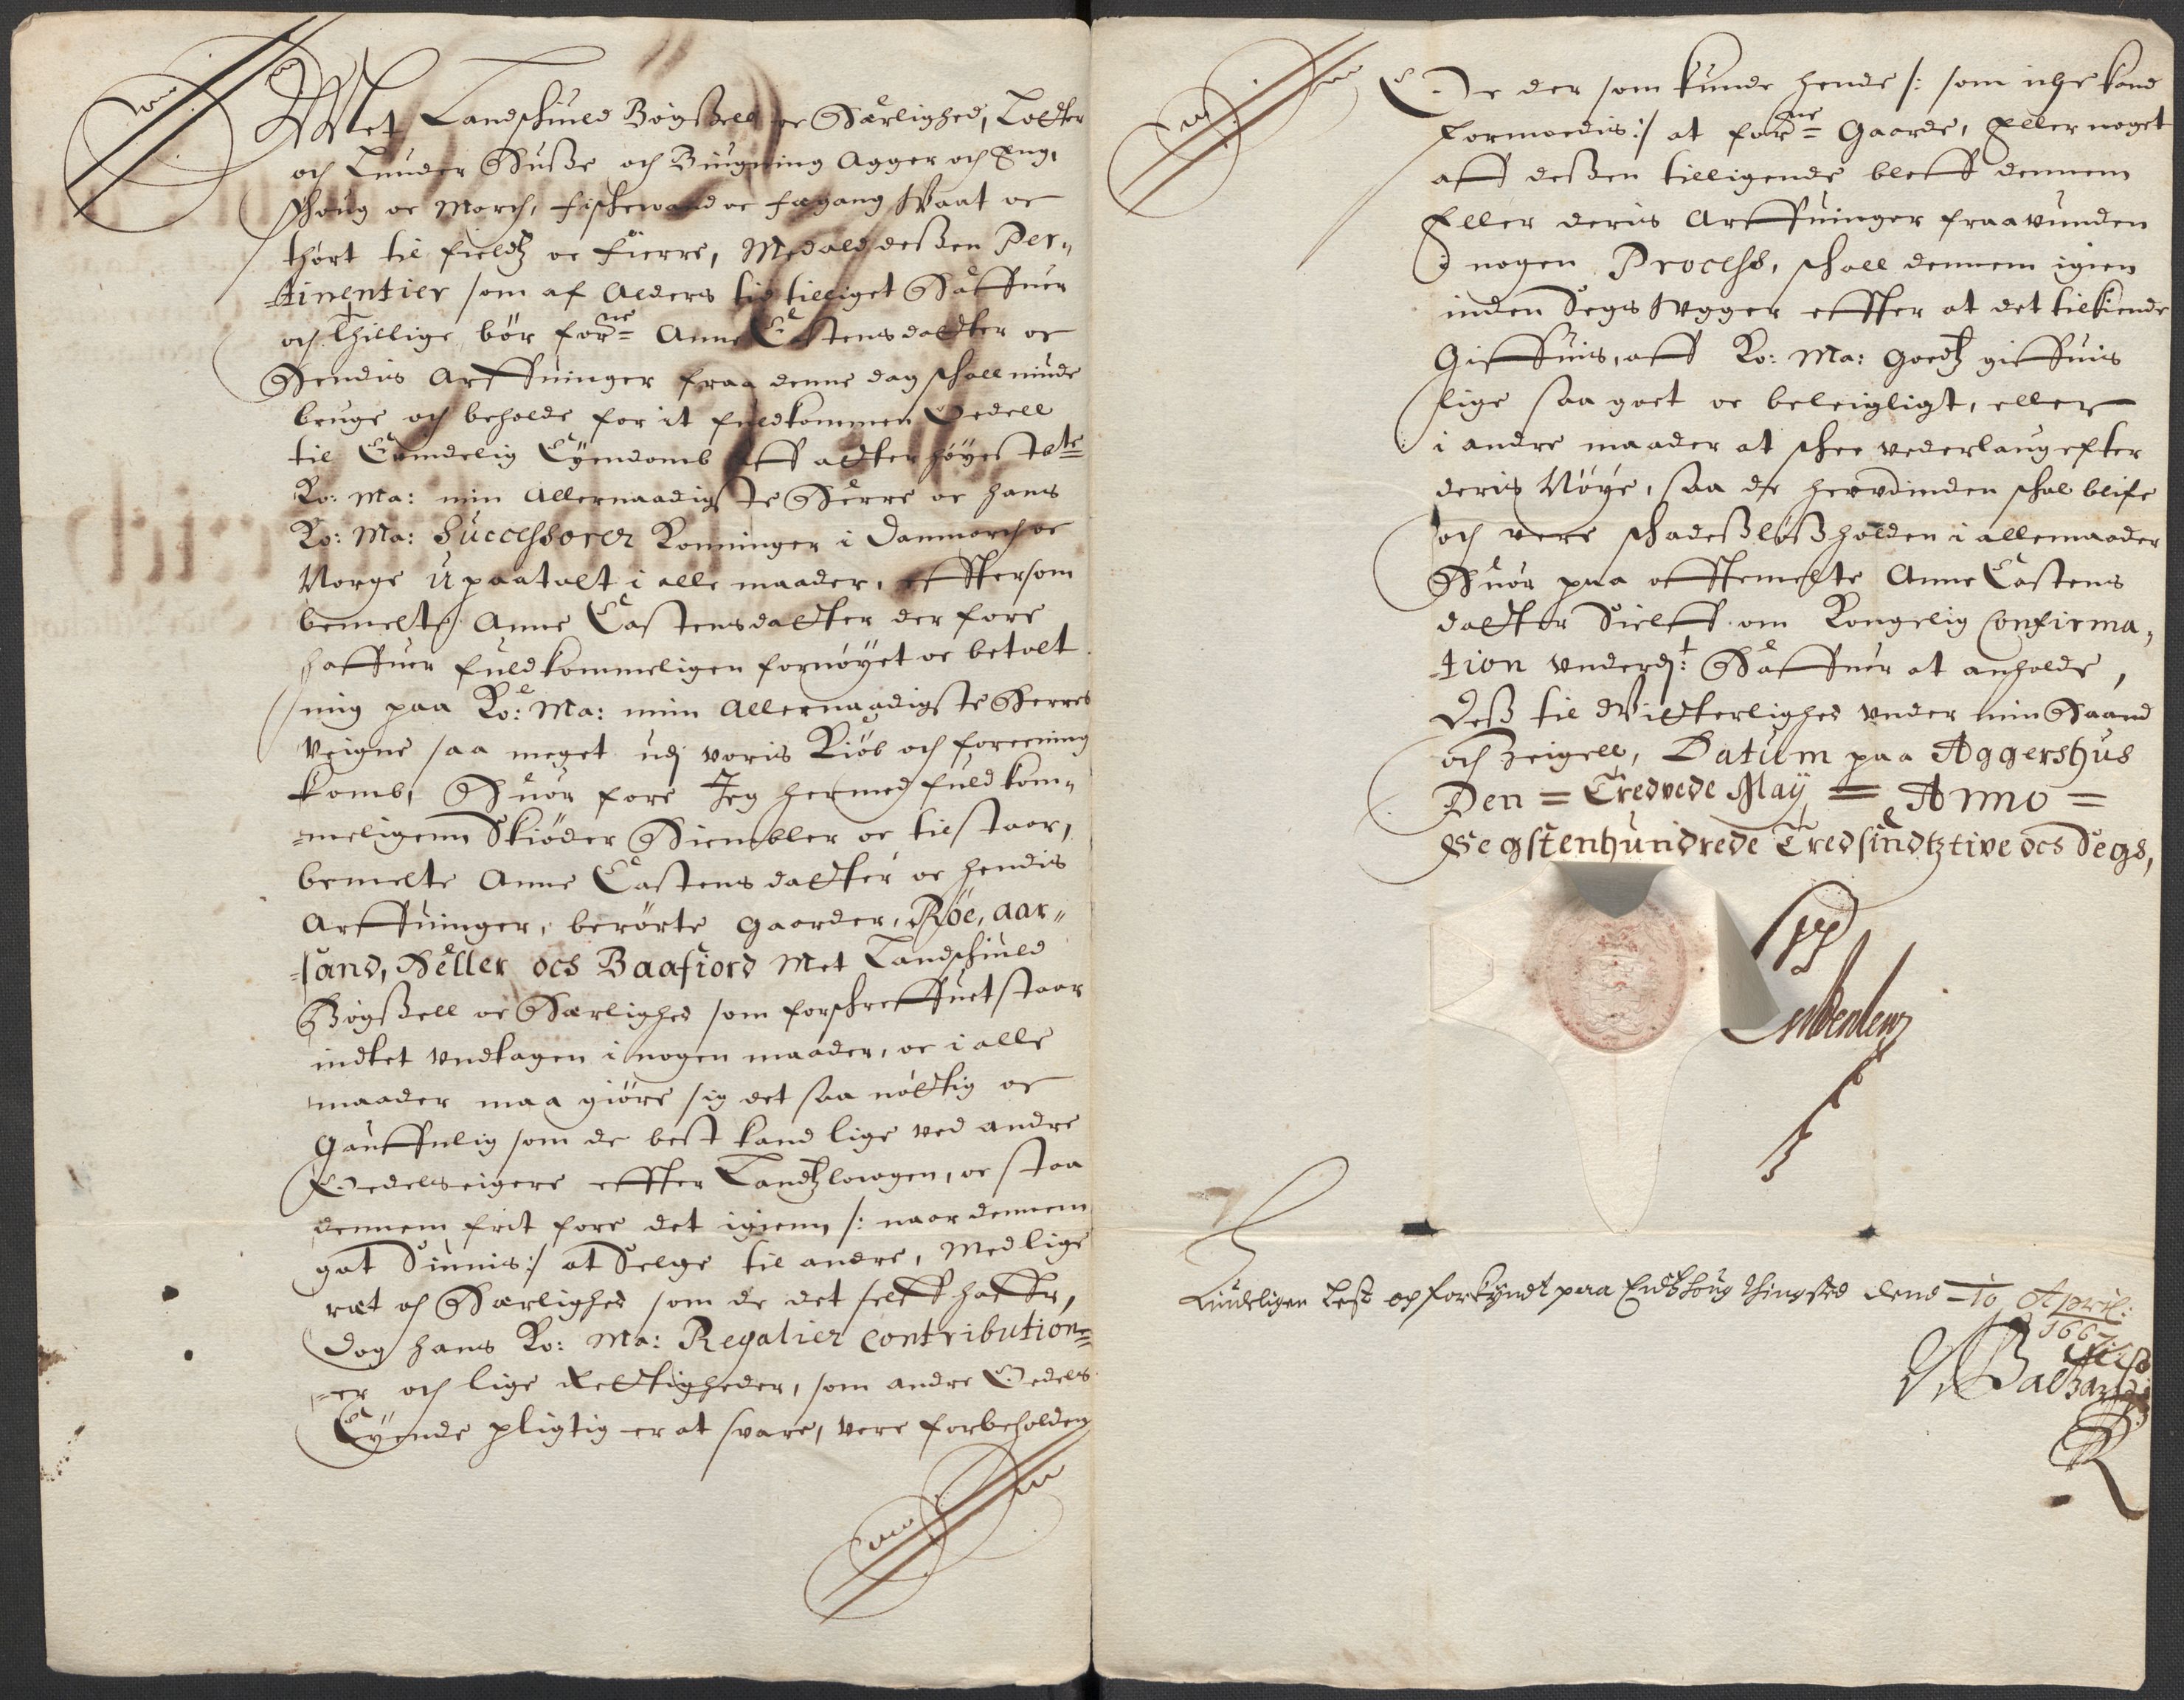 Met Landschiuld Bögßell oc Herlighed, Lotter
och Lunder Huße och Biugning Agger och Eng,
Schoug oc March, fischewand oc fægang Waat oc
thört til fieldtz oc fierre, Med ald deßen Per„
tinentier som af Alders tid tilliget Haffuer
och thillige bör forne Anne Castensdaatter oc
Hendis Arffuinger fraa denne dag schall niude
bruge och beholde for it fuldkommen Oedell
til Evindelig Eÿendomb aff aller höÿestbte
Ko: Ma: min Allernaadigste Herre oc hans
Ko: Ma: Successorer Konninger i Danmarch oc
Norge Upaatalt i alle maader, effttersom
bemelte Anne Castensdatter der fore
haffuer fuldkommeligen fornöÿet oc betalt
mig paa Ko: Ma: min Allernaadigste Herres
Veigne saa meget udj voris Kiöb och foreening
komb, Huor fore Jeg hermed fuldkom„
meligenn Skiöder Hiembler oc tilstaar,
bemelte Anne Castensdatter oc hendis
Arffuinger, berörte Gaarder, Röe, Aar„
sand, Heller och Baafiord Met Landschiuld
Bögßell oc Herlighed som forschreffuet staar
indtet undtagen i nogen maader, oc i alle
maader maa giöre sig det saa nöttig oc
Gauffnlig som de best kand lige ved andre
Oedelseigere effter Landtzlowgen, oc staa
dennem frit fore det igienn /: naar dennem
gat Sinnis :/ at Selge til andre, Med lige
ræt och Herlighed som de det selff haffr,
Dog hans Ko: Ma: Regalier Contribution=
=er och lige Rettigheder, som andre Oedels
Eÿende pligtig er at svare, vere forbeholden
Oc der som kunde hende /: som iche kand
formoedis :/ at forne Gaarde, Eller noget
aff deßen tilligende bleff dennem
Eller deris Arffuinger fraavunden
i nogen Process, schall dennem igien
inden Segs Ugger effter at det tilkiende
Giffuis, aff Ko: Ma: Goedtz giffuis
lige saa goet oc beleigligt, eller
i andre maader at schee vederlaug efter
deris Nöÿe, saa de herudinden schal blife
och vere schadeßlößholden i alle maader
Huor paa offtemelte Anne Castens
datter Sielff om Kongelig Confirma„
tion Underdt: Haffuer at anholde,
Deß til Vitterlighed under min Haand
och Zeigell, Datum paa Aggershus
Den = Tredvede Maÿ = Anno =
Segstenhundrede Tredsindtztive och Segs,
Liudeligen Lest och forkÿndt paa thingsted dend 10 April:
1667